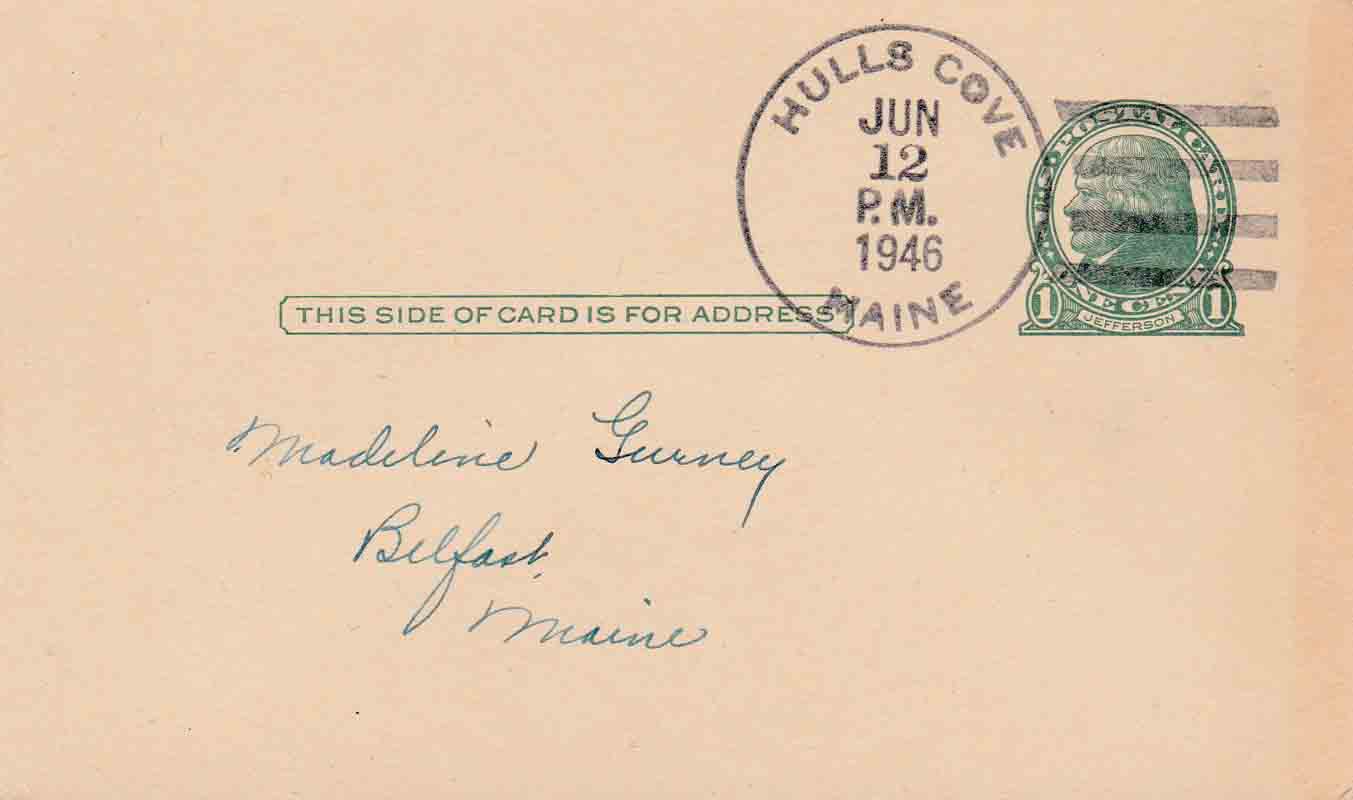 HULLS COVE
JUN
12
P.M.
1946
MAINE
U.S. POSTAL CARD
ONE CENT
1 JEFFERSON 1
THIS SIDE OF CARD IS FOR ADDRESS
Madeline Gurney
Belfast,
Maine